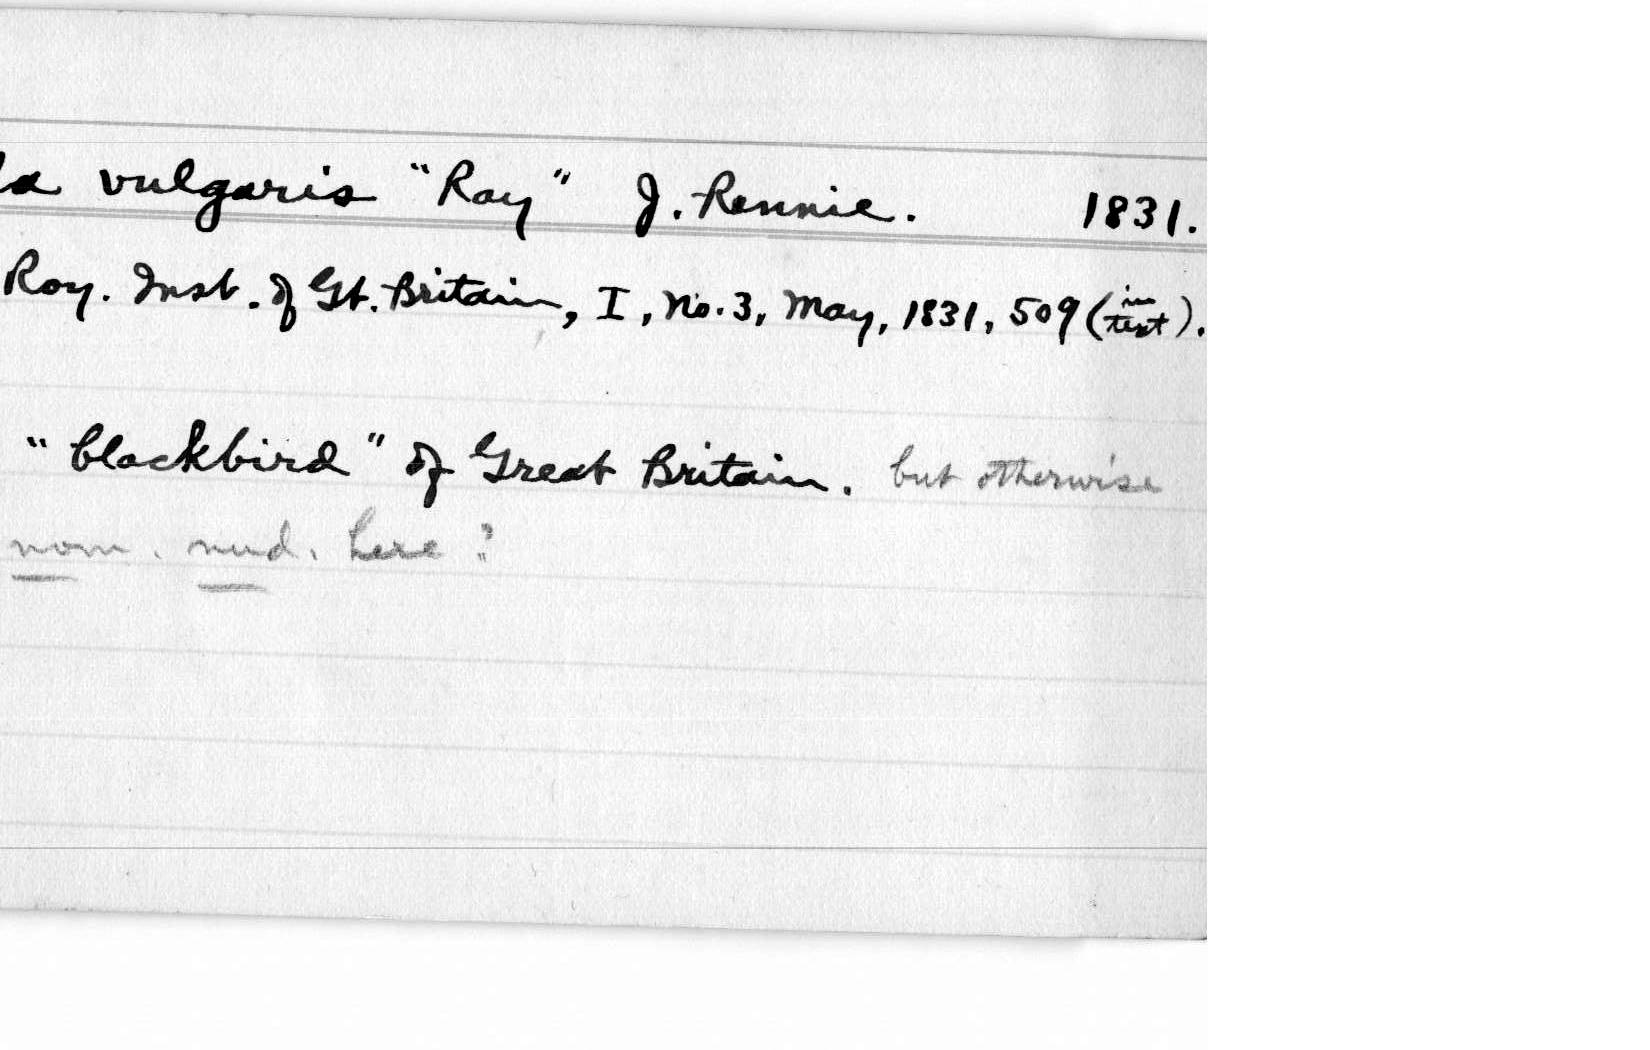 la vulgaris "Ray" J. Rennie. 1831.
Roy. Inst. of Gt. Britain, I, No. 3, May, 1831, 509 (in text).
"blackbird" of Great Britain. but otherwise
nom. nud. here?